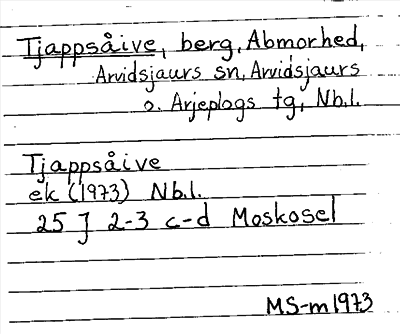 Tjappsåive, berg, Abmorhed,
Arvidsjaurs sn, Arvidsjaurs
o. Arjeplogs tg, Nb.l.
Tjappsåive
ek (1973) Nb.l.
25 J 2-3 c-d Moskosel
MS-m 1973